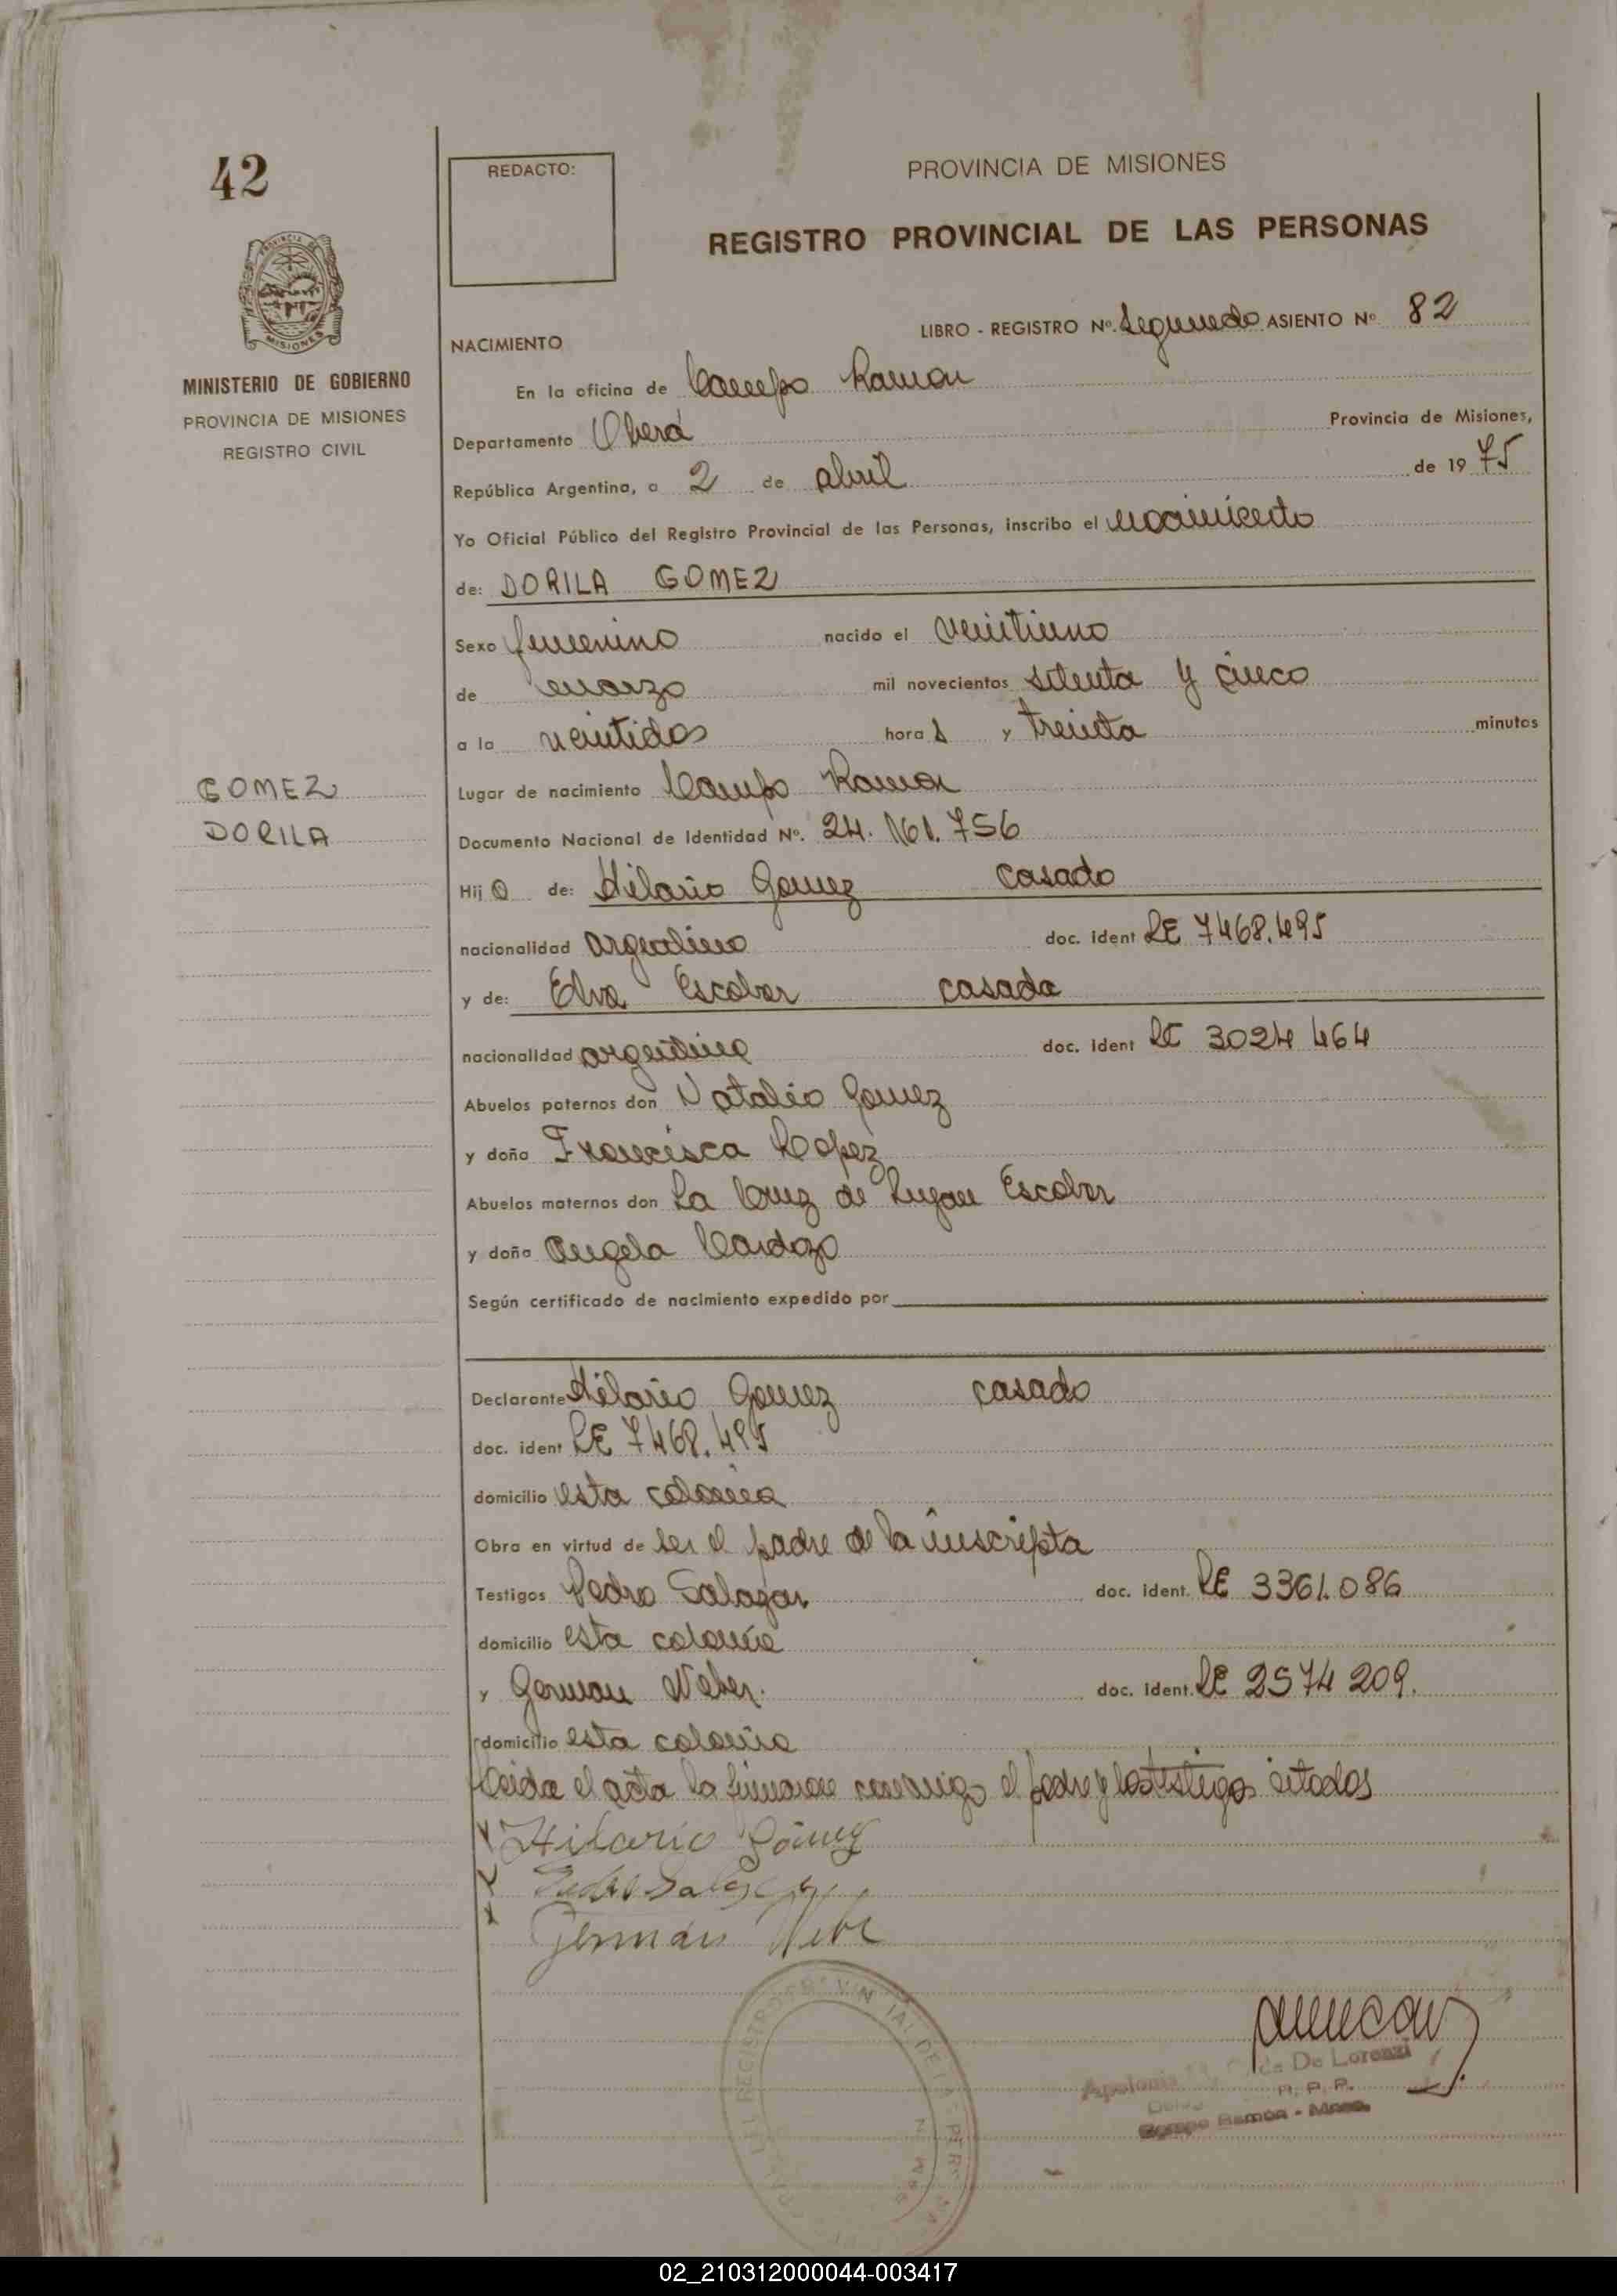 42
REDACTO:
PROVINCIA DE MISIONES
REGISTRO PROVINCIAL DE LAS PERSONAS
MISIONES
MINISTERIO DE GOBIERNO
PROVINCIA DE MISIONES
REGISTRO CIVIL
LIBRO - REGISTRO Nº. Segundo ASIENTO Nº 82
NACIMIENTO
En la oficina de Campo Ramon
Departamento Oberá Provincia de Misiones,
República Argentina, a 2 de abril de 19 75
Yo Oficial Público del Registro Provincial de las Personas, inscribo el nacimiento
de: DORILA GOMEZ
Sexo femenino nacido el veintiuno
de marzo mil novecientos setenta y cinco
a la veintidos hora s y treinta minutos
GOMEZ
DORILA
Lugar de nacimiento Campo Ramon
Documento Nacional de Identidad Nº. 24.161.756
Hij a de: Hilario Gomez casado
nacionalidad argentino doc. ident LE 7468.495
y de: Elva Escobar casada
nacionalidad argentina doc. ident LC 3024 464
Abuelos paternos don Natalio Gomez
y doña Francisca Lopez
Abuelos maternos don La Cruz de Lujan Escobar
y doña Angela Cardozo
Según certificado de nacimiento expedido por
Declarante Hilario Gomez casado
doc. ident LE 7468.495
domicilio esta colonia
Obra en virtud de ser el padre de la inscripta
Testigos Pedro Salazar doc. ident. LE 3361.086
domicilio esta colonia
y German Weber. doc. ident. LE 2574 209.
domicilio esta colonia
Leida el acta la firmaron conmigo el padre y los testigos citados
Hilario Gómez
Pedro Salazar
German Webe
REGISTRO PROVINCIAL DE LAS PER
Apolonia de De Lorenzi
R. P. P.
Campo Ramon - Mnes.
02_210312000044-003417